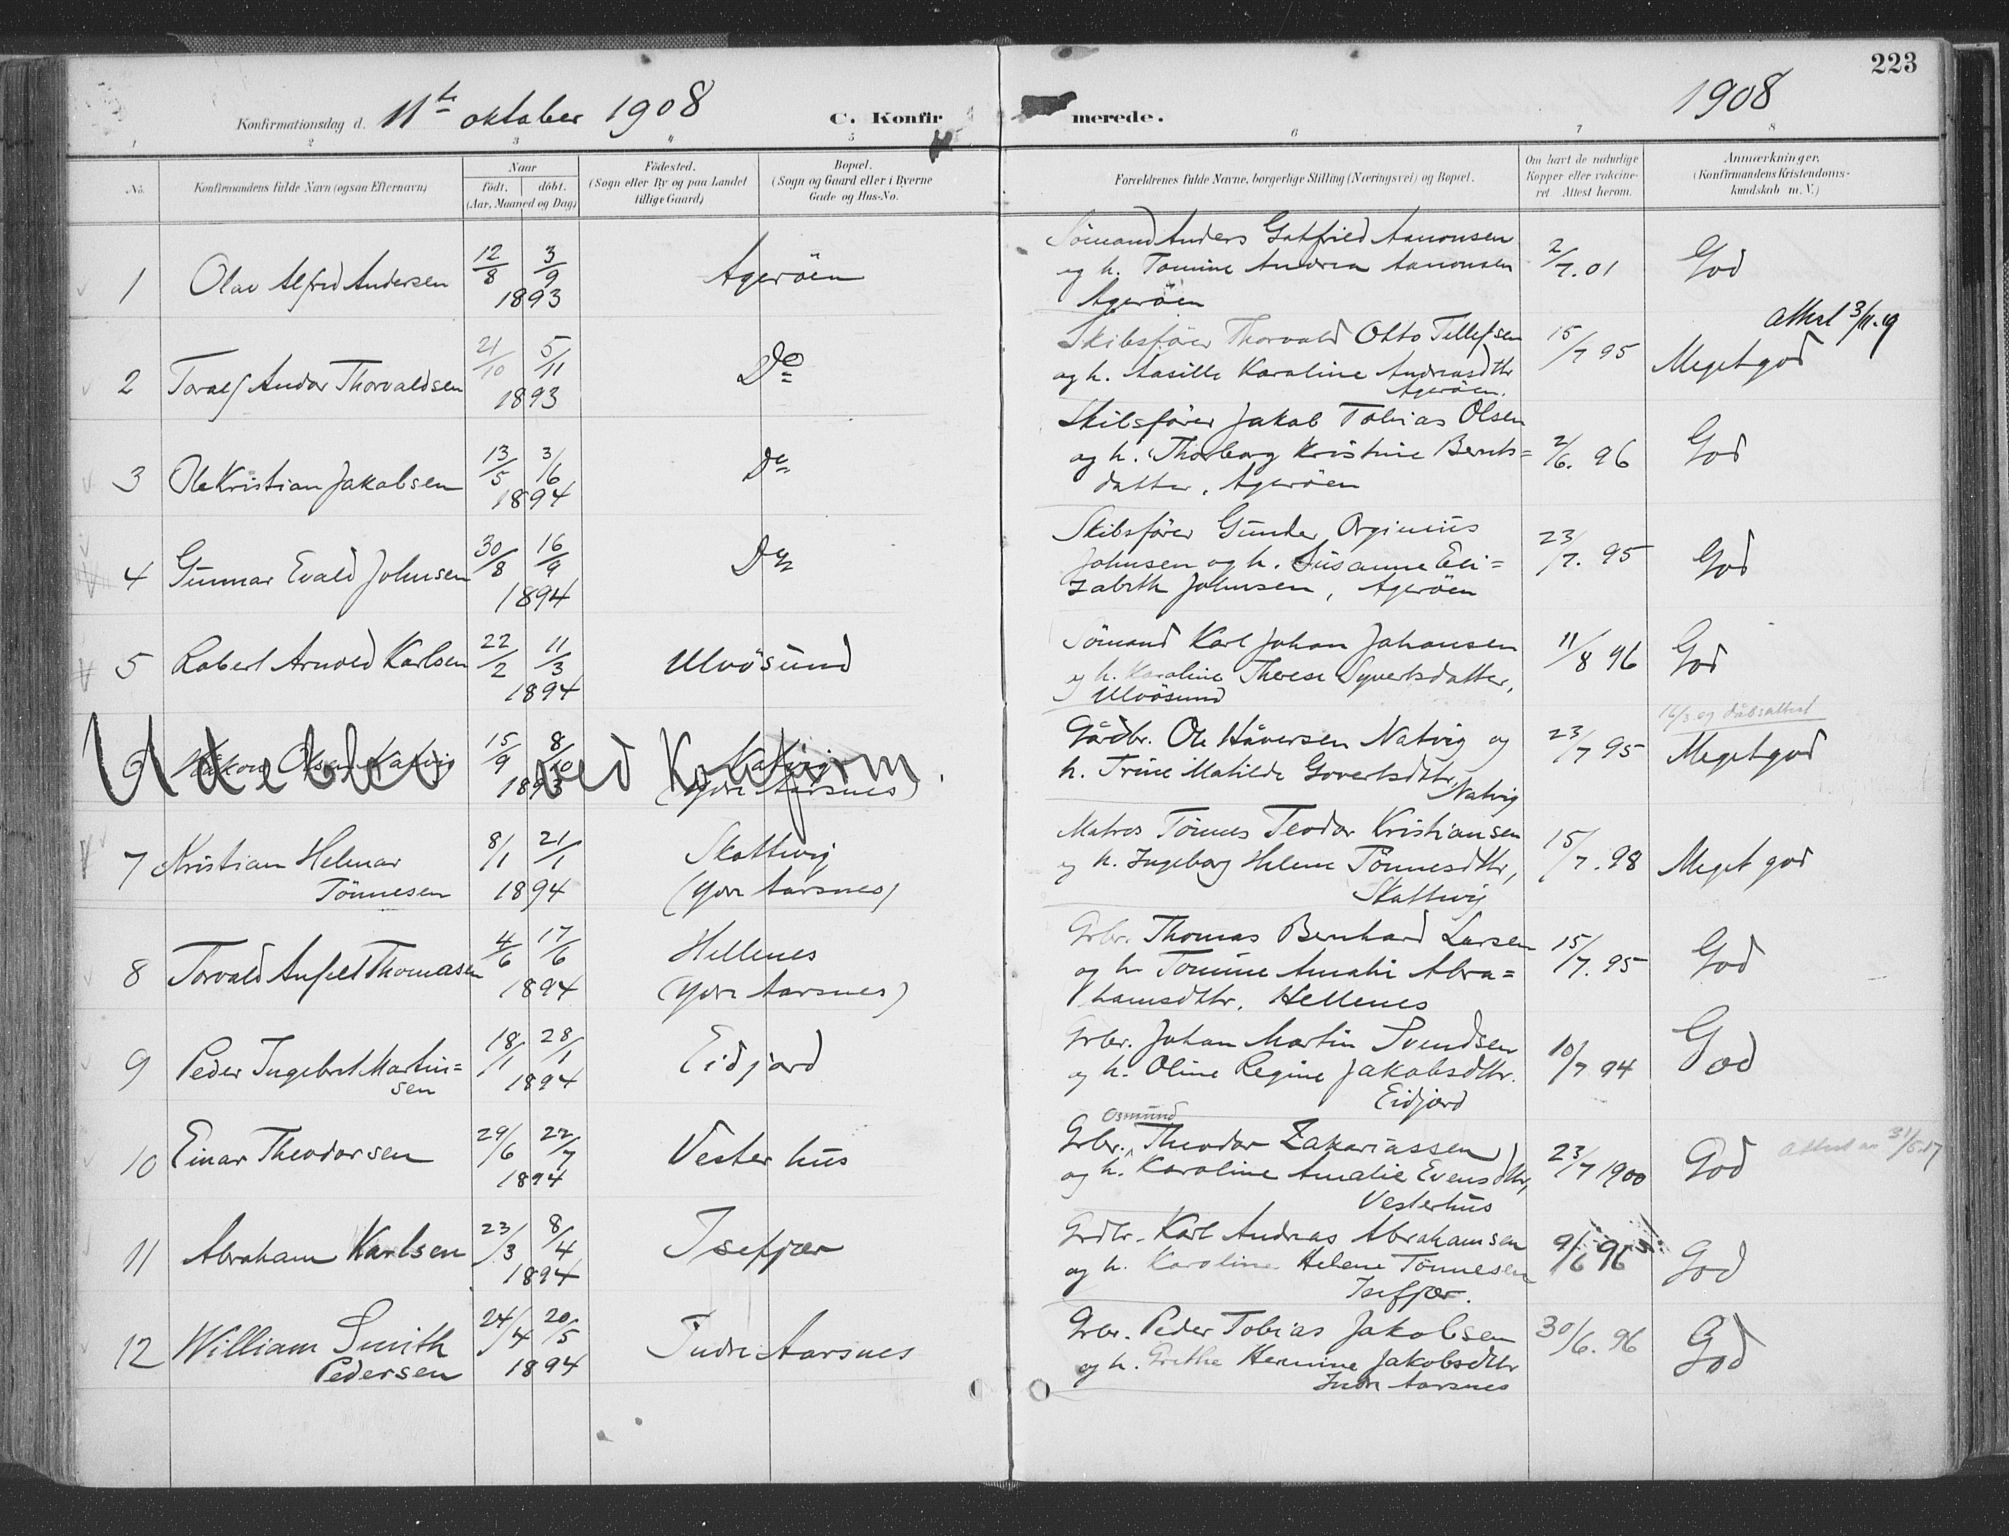 223
Konfirmationsdag d. 11te oktober 1908 C. Konfirmerede. 1908
1 2 3 4 5 6 7 8
No. Konfirmandens fulde Navn (ogsaa Efternavn)
Naar
født. døbt.
(Aar, Maaned og Dag)
Fødested.
(Sogn eller By og paa Landet
tillige Gaard)
Bopæl.
(Sogn og Gaard eller i Byerne
Gade og Hus-No.
Forældrenes fulde Navne, borgerlige Stilling (Næringsvei) og Bopæl.
Om havt de naturlige
Kopper eller vakcine-
ret. Attest herom.
Anmærkninger.
(Konfirmandens Kristendoms-
kundskab m. V.)
1 Olav Alfred Andersen 12/8 3/9 1893 Agerøen
Sømand Anders Gotfried Aanonsen
og h. Tomine Andrea Aanonsen
Agerøen
2/7.01 God
2 Toralf Andor Thorvaldsen 21/10 5/11 1893 Do
Skibsfører Thorvald Otto Tellefsen
og h. Aasille Karoline Andreasdtr
Agerøen.
15/7 95 Meget god
Attest 3/11.19
3 Ole Kristian Jakobsen 13/5 3/6 1894 Do
Skibsfører Jakob Tobias Olsen
og h. Thorborg Kristine Bernts=
datter, Agerøen
2/6. 96 God
4 Gunnar Evald Johnsen 30/8 16/9 1894 Do
Skibsfører Gunder Orginius
Johnsen og h. Susanne Eli=
zabeth Johnsen, Agerøen
23/7. 95 God
5 Robert Arnold Karlsen 22/2 11/3 1894 Ulvøsund
Sømand Karl Johan Johansen
og h. Karoline Therese Syvertsdatter,
Ulvøsund
11/8 96 God
6 Håkon Olsen Natvig 15/9 8/10 1893 Natvig
(Ydre Aarsnes)
Udeblev ved Konfirm.
Gårdbr. Ole Håversen Natvig og
h. Trine Matilde Govertsdtr,
Natvig
23/7 95 Meget god
16/3 og dåbsattest
7 Kristian Helmar
Tønnesen
8/1 21/1 1894 Skottevig
(Ydre Aarsnes)
Matros Tønnes Teodor Kristiansen
og h. Ingeborg Helene Tønnesdtr,
Skottevig
15/7. 98 Meget god
8 Torvald Anfelt Thomasen 4/6 17/6 1894 Hellenes
(Ydre Aarsnes)
Grbr. Thomas Bernhard Larsen
og h. Tomine Amalie Abra=
hamsdtr. Hellenes
15/7. 95 God
9 Peder Ingebret Martin=
sen
18/1 28/1 1894 Eidjord
Grbr. Johan Martin Svendsen
og h. Oline Regine Jakobsdtr.
Eidjord
10/7 94 God
10 Einar Theodorsen 29/6 22/7 1894 Vesterhus
Osmund
Grbr. Theodor Zakariassen
og h. Karoline Amalie Evensdtr,
Vesterhus
23/7 1900 God
Attest 31/5.17
11 Abraham Karlsen 23/3 8/4 1894 Isefjær
Grdbr. Karl Andreas Abrahamsen
og h. Karoline Helene Tønnesen
Isefjær.
9/6 96 God
12 William Smith
Pedersen
24/4 20/5 1894 Indre Aarsnes
Grbr. Peder Tobias Jakobsen
og h. Grethe Hermine Jakobsdtr
Indre Aarsnes
30/6. 96 God